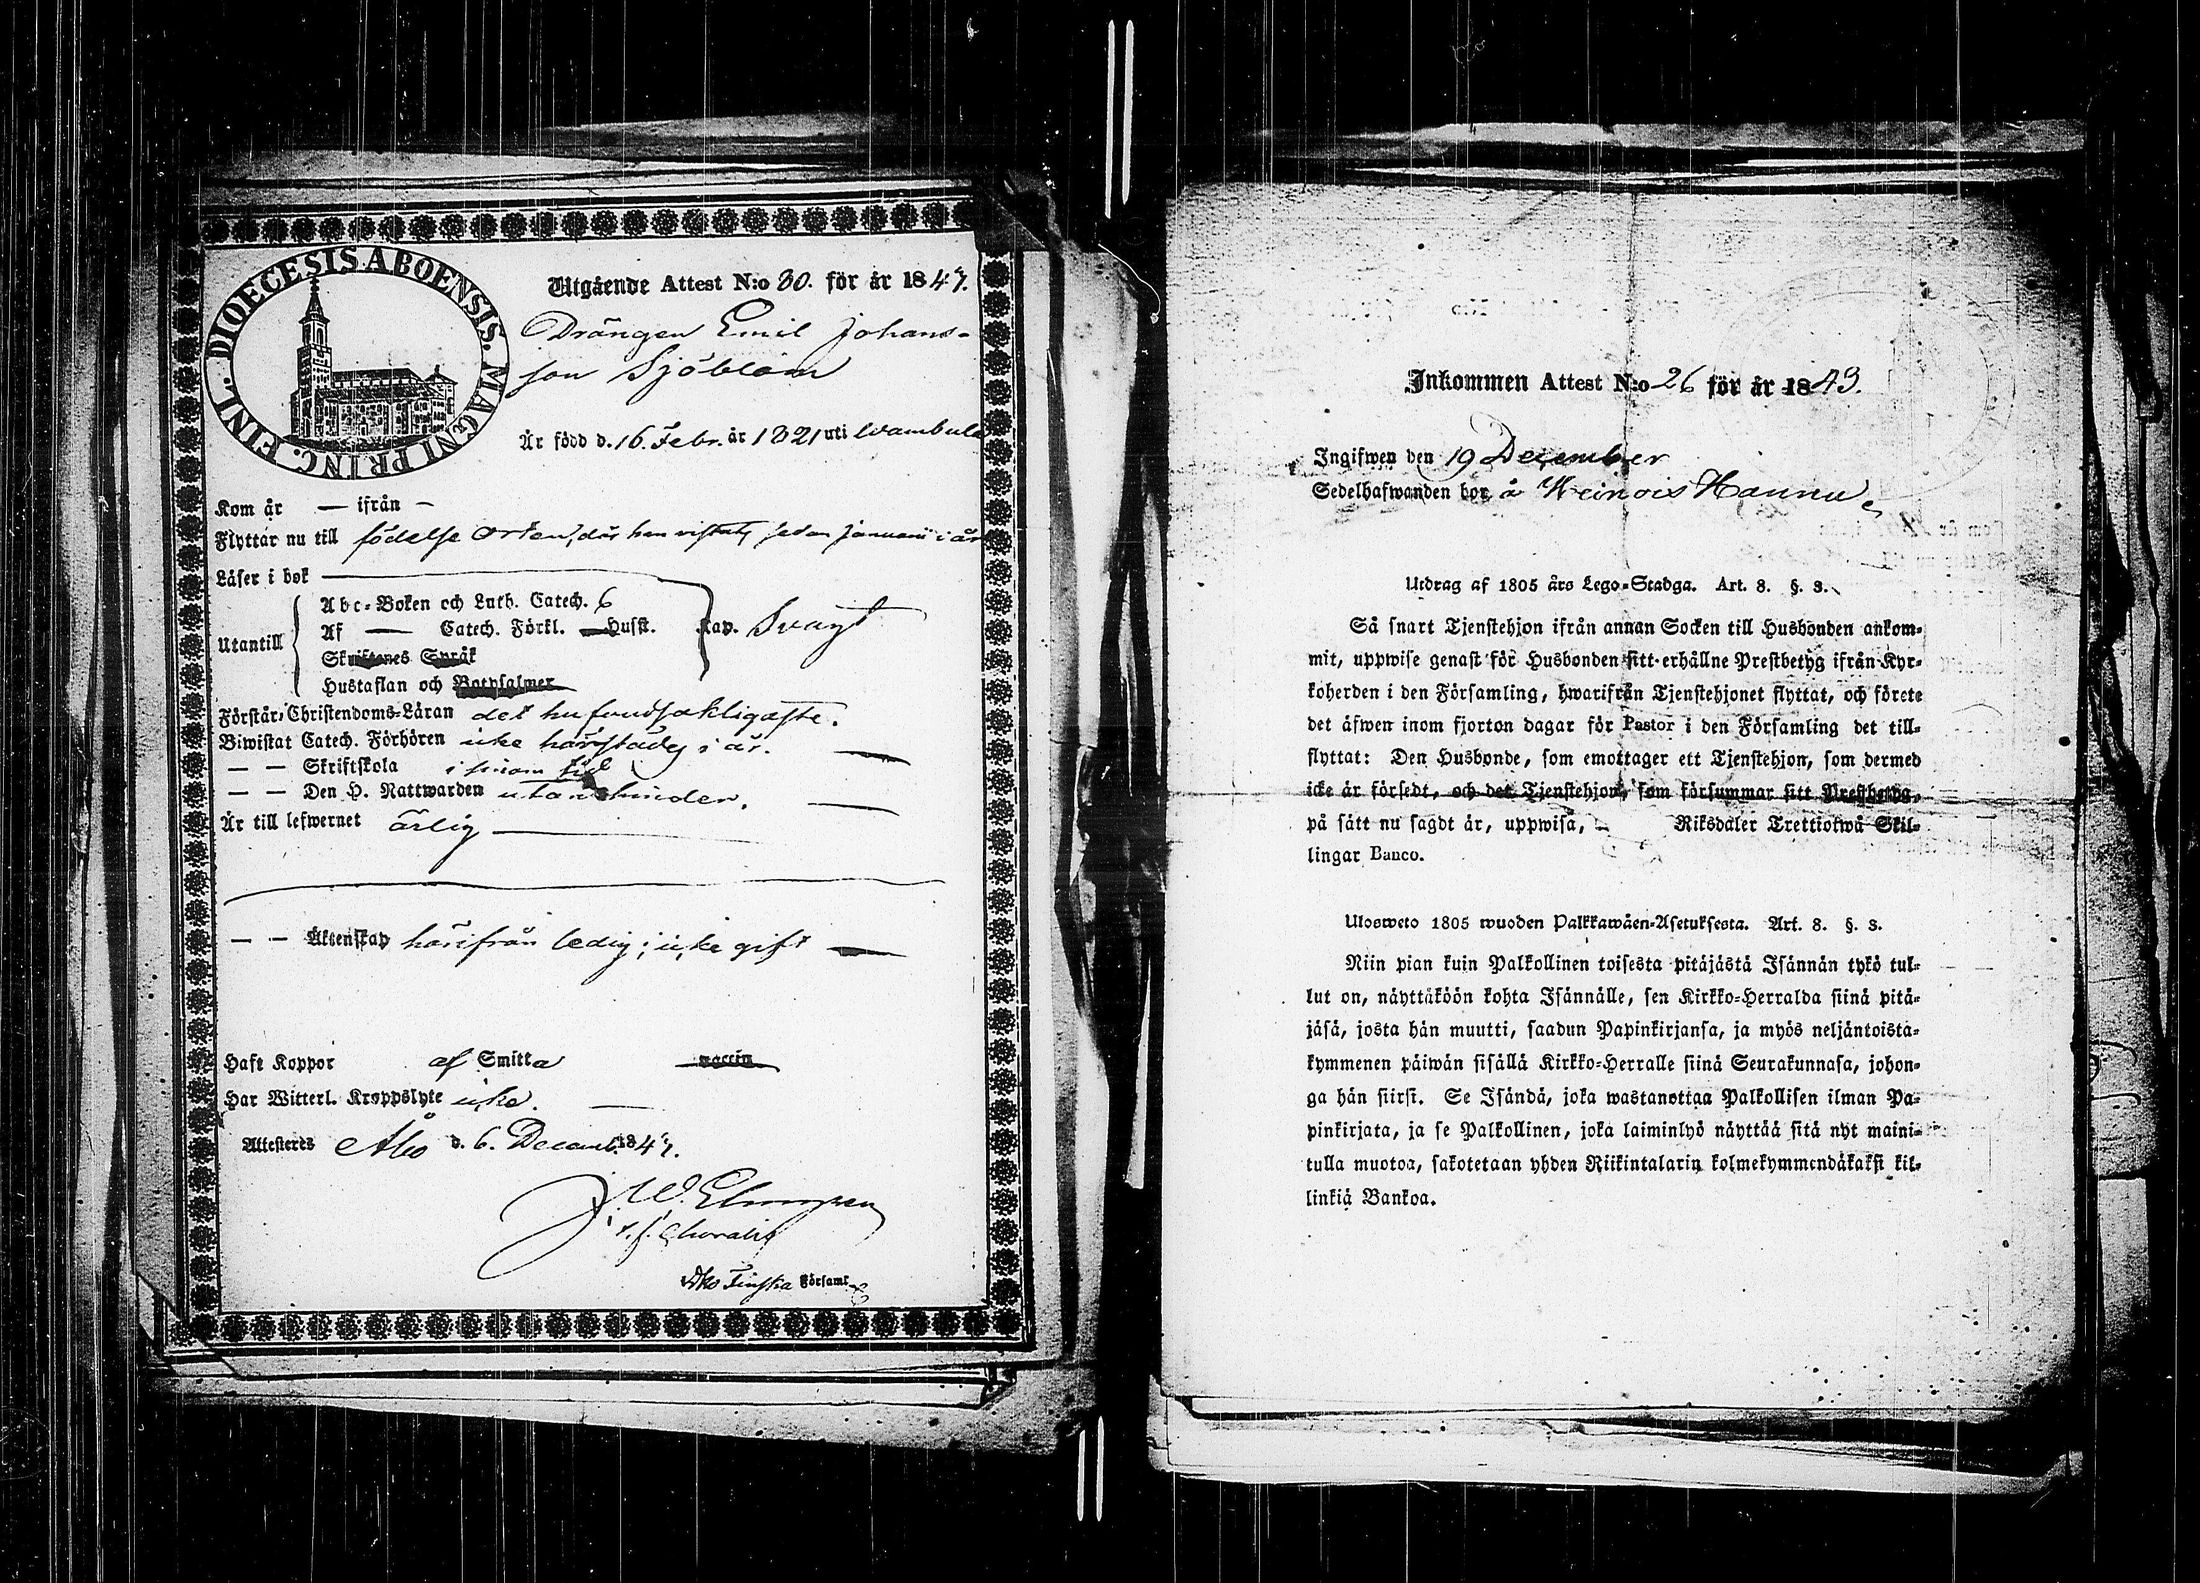 DIOECESIS ABOENSIS. MAGNI PRINC. FINL.
Utgående Attest N:o 30. för år 1847.
Drängen Emil Johans-
son Sjöblom
Är född d. 16. Febr. år 1821 uti Wambula
Kom år — ifrån —
Flyttar nu till födelse orten, där han vistats sedan Januari i år
Läser i bok
Utantill
Abc-Boken och Luth. Catech. 6
Af — Catech. Förkl. Husst. Kap. Svagt
Skriftenes Språk
Hustaflan och Botpsalmer
Förstår Christendoms-Läran det hufvudsakligaste.
Biwistat Catech. Förhören icke härstädes i år.
— — Skriftskola i sinom tid
— — Den H. Nattwarden utan hinder.
Är till lefwernet ärlig
— — Äktenskap härifrån ledig; icke gift
Haft Koppor af Smitta vaccin
Har Witterl. Kroppslyte icke.
Attesteras Åbo d. 6. Decemb. 1847.
J. W.
Åbo Finska Församl.
Inkommen Attest N:o 26 för år 1843.
Ingifwen den 19 December
Sedelhafwanden bor å Heinois Hannu
Utdrag af 1805 års Lego-Stadga. Art. 8. §. 3.
Så snart Tjenstehjon ifrån annan Socken till Husbonden ankom-
mit, uppwise genast för Husbonden sitt erhållne Prestbetyg ifrån Kyr-
koherden i den Församling, hwarifrån Tjenstehjonet flyttat, och förete
det äfwen inom fjorton dagar för Pastor i den Församling det till-
flyttat: Den Husbonde, som emottager ett Tjenstehjon, som dermed
icke är försedt, och det Tjenstehjon, som försummar sitt Prestbetyg,
på sätt nu sagdt är, uppwisa, Riksdaler Trettiotwå Skil-
lingar Banco.
Ulosweto 1805 wuoden Palkkawäen-Asetuksesta. Art. 8. §. 3.
Niin pian kuin Palkollinen toisesta pitäjästä Isännän tykö tul-
lut on, näyttäköön kohta Isännälle, sen Kirkko-Herralda siinä pitä-
jäsä, josta hän muutti, saadun Papinkirjansa, ja myös neljäntoista-
kymmenen päiwän sisällä Kirkko-Herralle siinä Seurakunnasa, johon-
ga hän siirsi. Se Isändä, joka wastanottaa Palkollisen ilman Pa-
pinkirjata, ja se Palkollinen, joka laiminlyö näyttää sitä nyt maini-
tulla muotoa, sakotetaan yhden Riikintalarin kolmekymmendäkaksi kil-
linkiä Bankoa.